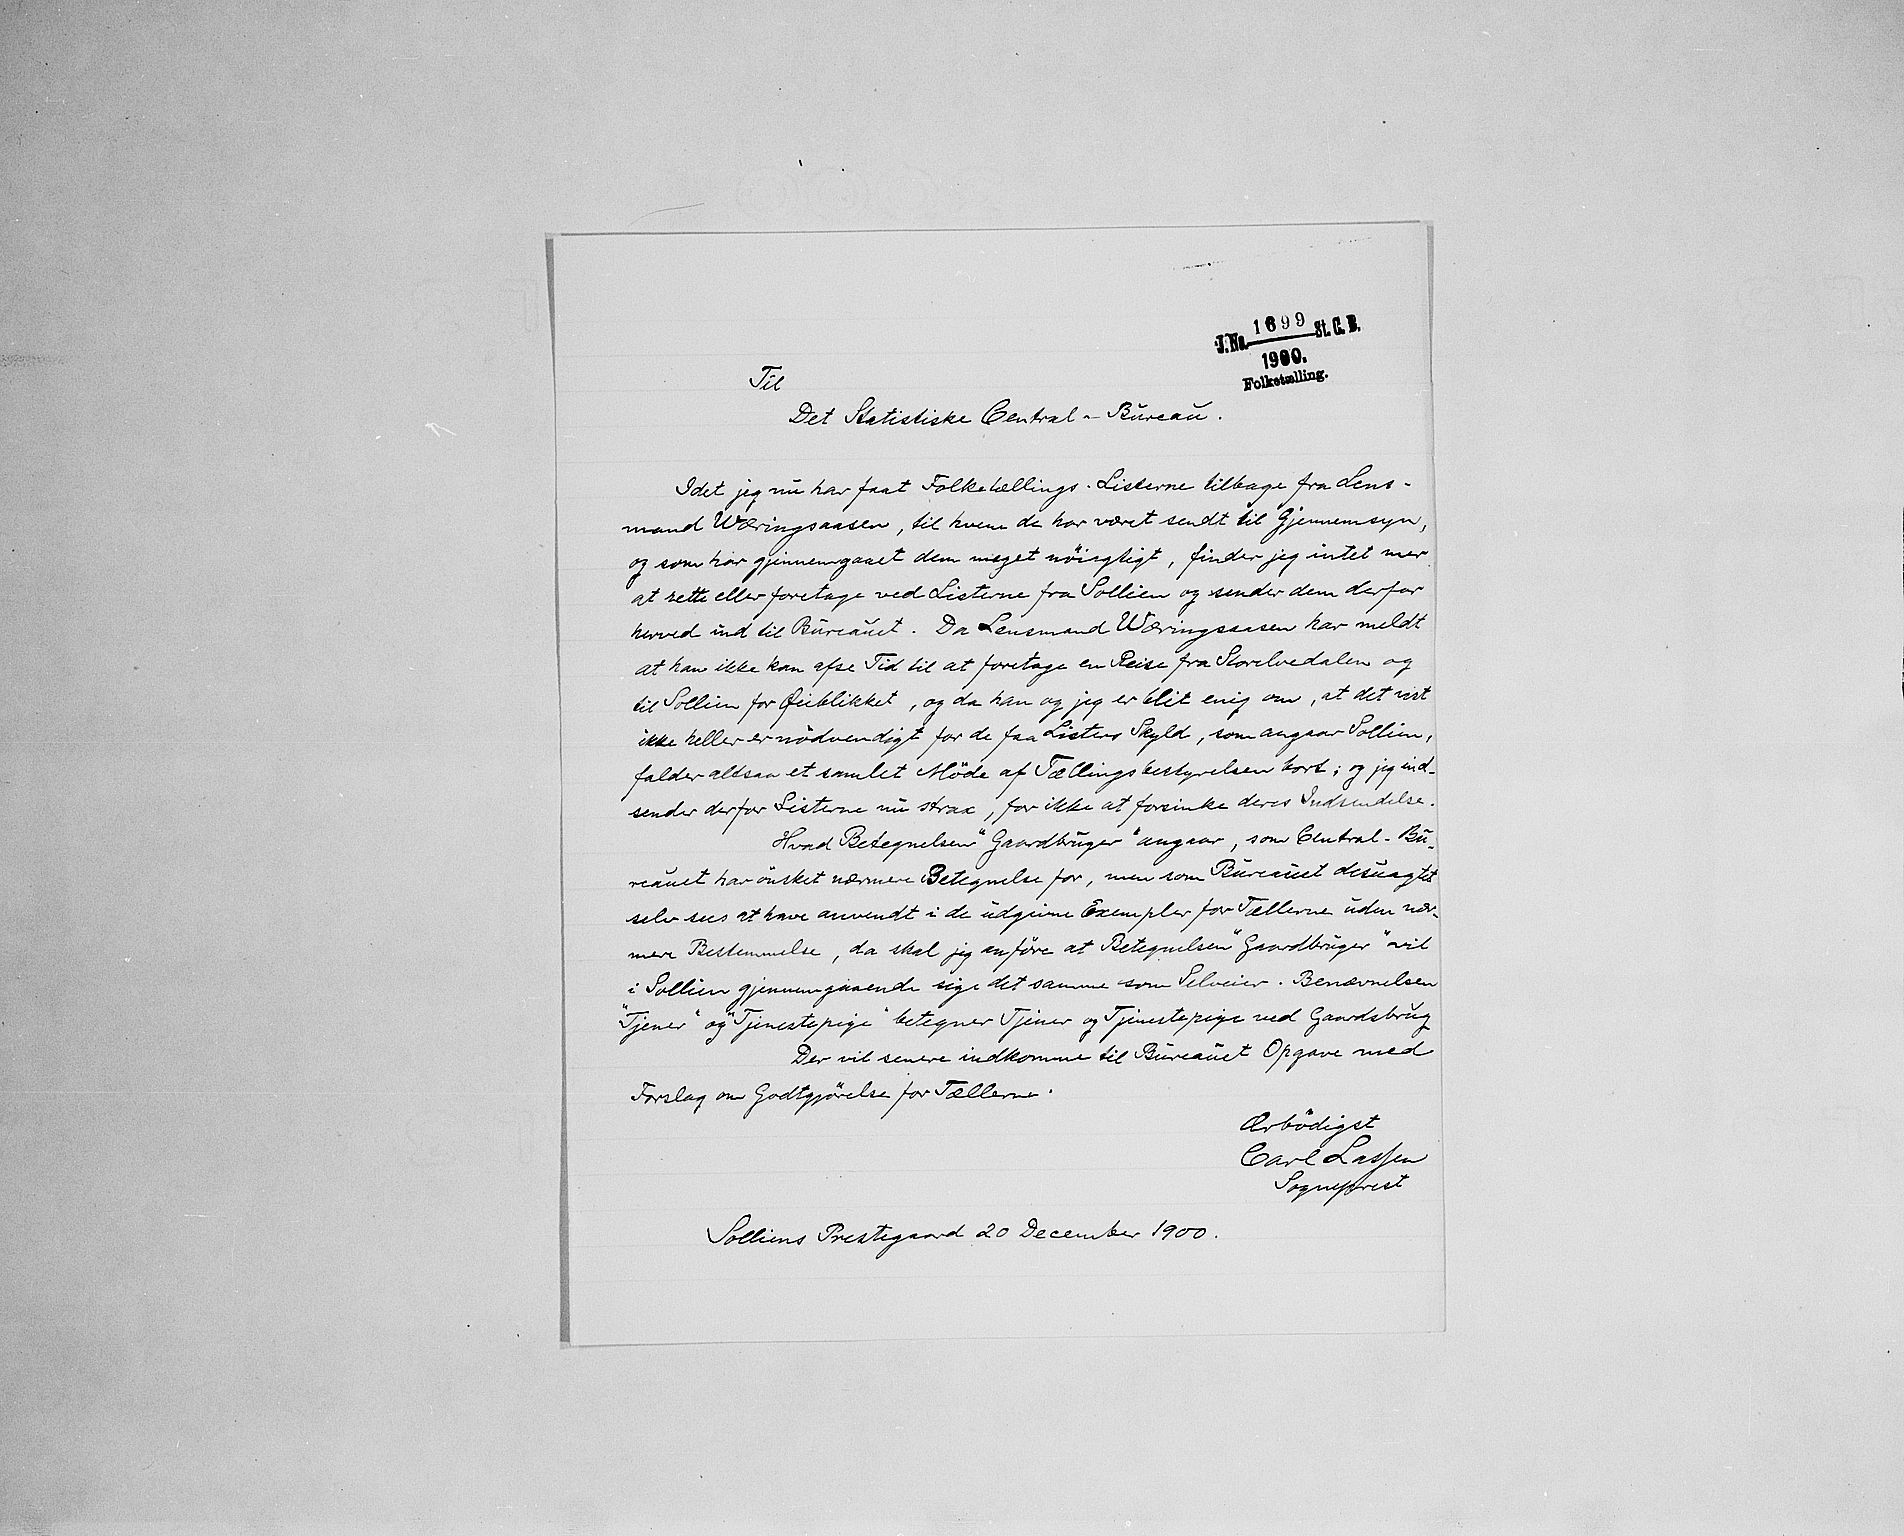 J.No. 1699 St. C. B.
1900.
Folketælling.
Til
Det Statistiske Central-Bureau.
Idet jeg nu har faat Folketællings-Listerne tilbage fra Lens-
mand Wæringsaasen, til hvem de har været sendt til Gjennemsyn,
og som har gjennemgaaet dem meget nöiagtigt, finder jeg intet mer
at rette eller foretage ved Listerne fra Sollien og sender dem derfor
herved ind til Bureauet. Da Lensmand Wæringsaasen har meldt
at han ikke kan afse Tid til at foretage en Reise fra Storelvedalen og
til Sollien for Øieblikket, og da han og jeg er blit enig om, at det vist
ikke heller er nödvendigt for de faa Listers Skyld, som angaar Sollien,
falder altsaa et samlet Möde af Tællingsbestyrelsen bort; og jeg ind-
sender derfor Listerne nu strax, for ikke at forsinke deres Indsendelse.
Hvad Betegnelsen "Gaardbruger" angaar, som Central-Bu-
reauet har önsket nærmere Betegnelse for, men som Bureauet desuagtet
selv sees at have anvendt i de udgivne Exempler for Tællerne uden nær-
mere Bestemmelse, da skal jeg anföre at Betegnelsen "Gaardbruger" vil
i Sollien gjennemgaaende sige det samme som Selveier. Benævnelsen
"Tjener" og "Tjenestepige" betegner Tjener og Tjenestepige ved Gaardsbrug
Der vil senere indkomme til Bureauet Opgave med
Forslag om Godtgjörelse for Tællerne.
Ærbödigst
Carl Lassen
Sogneprest
Solliens Prestegaard 20 December 1900.